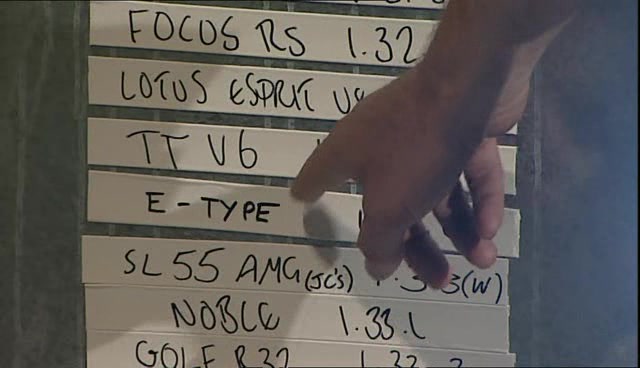 FOCUS RS 1.32
LOTUS ESPRIT V8
TT V6
E-TYPE
SL 55 AMG (JC'S) 3(W)
NOBLE 1.33.1
GOLF R32